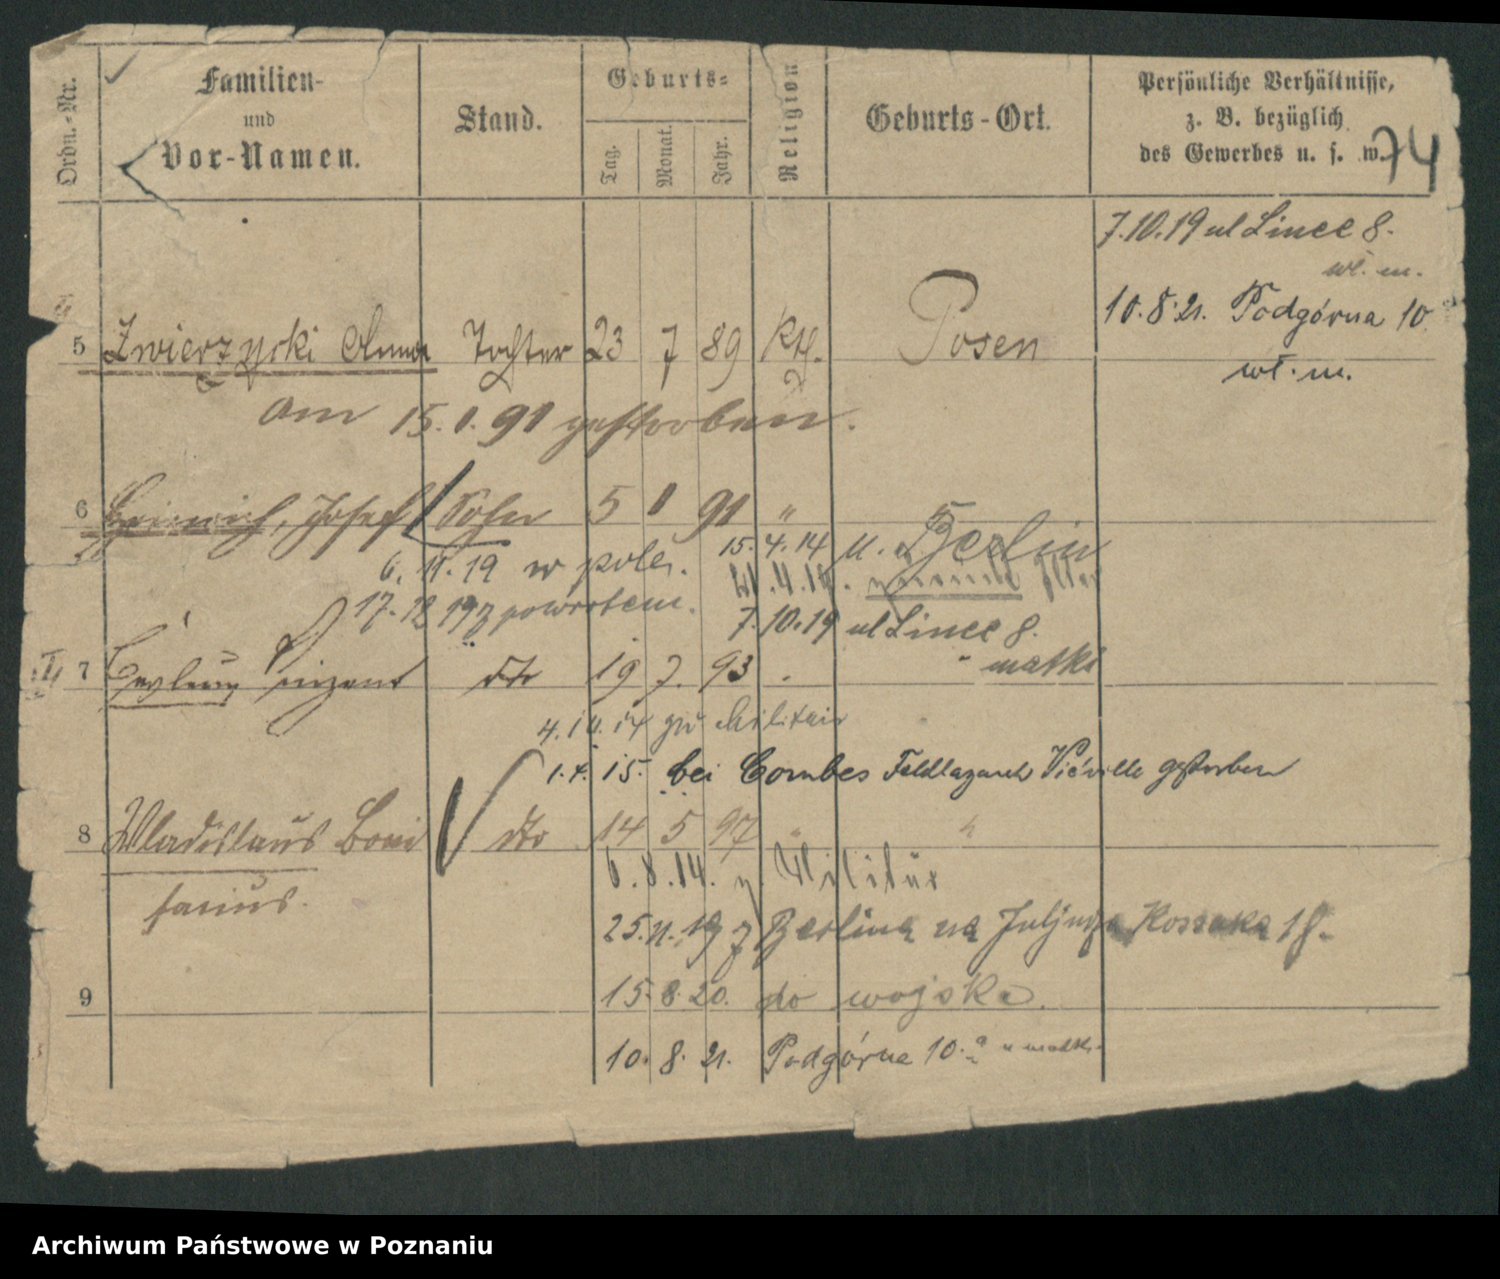 Ordn.-Nr.
Familien-
und
Vor-Namen.
Stand.
Geburts-
Tag.
Monat.
Jahr.
Religion
Geburts-Ort.
Persönliche Verhältnisse,
z. B. bezüglich
des Gewerbes u. s. w.
74
7.10.19 ul Linee 8.
wł. m.
10.8.21. Podgórna 10
wł. m.
5 Zwierzycki Anna Tochter 23 7 89 Kth. Posen
am 15.1.91 gestorben.
6 Heinrich, Josef Sohn 5 1 91 "
15.4.14 n. Berlin
6.11.19 w pole.
17.12.19 z powrotem.
7.10.19 ul Linee 8.
matki
7 dto 19 7. 93
4.10.14 zu Militair
1.4.15. bei Combes Feldlazareth Viéville gestorben
8 Wladislaus Boni dto 14 5 97 " "
facius.
6.8.14. z. Militär
25.11.19 z Berlina na Juljusza Kossaka 18.
9
15.8.20. do wojska.
10.8.21. Podgórna 10. u matki
Archiwum Państwowe w Poznaniu